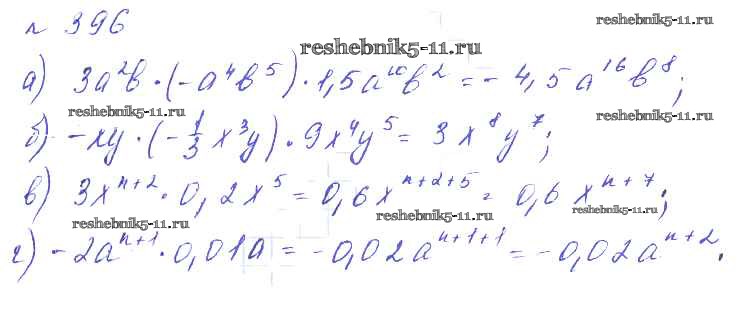 № 396
reshebnik5-11.ru
reshebnik5-11.ru
а) 3a²b · (-a⁴b⁵) · 1,5a¹⁰b² = - 4,5a¹⁶b⁸;
reshebnik5-11.ru
б) -xy · (-1/3 x³y) · 9x⁴y⁵ = 3x⁸y⁷;
reshebnik5-11.ru
в) 3xⁿ⁺² · 0,2x⁵ = 0,6xⁿ⁺²⁺⁵ = 0,6xⁿ⁺⁷;
reshebnik5-11.ru
reshebnik5-11.ru
reshebnik5-11.ru
г) -2aⁿ⁺¹ · 0,01a = -0,02aⁿ⁺¹⁺¹ = -0,02aⁿ⁺².